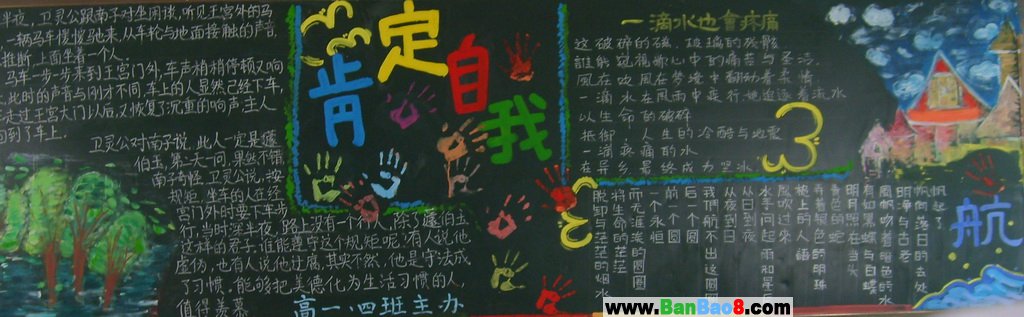 半夜,卫灵公跟南子对坐闲谈,听见王宫外的马
一辆马车慢慢驰来,从车轮与地面接触的声音
推断,上面坐着一个人。
马车一步一步来到王宫门外,车声稍稍停顿又响
此时的声音与刚才不同,车上的人显然已经下车,
走过王宫大门以后,又恢复了沉重的响声主人
回到了车上。
卫灵公对南子说,此人一定是蘧
伯玉,第二天一问,果然不错
南子奇怪,卫灵公说,按
规矩,坐车的人在经
宫门外时要下车步
行,当时深半夜,路上没有一个行人,除了蘧伯玉
这样的君子,谁能遵守这个规矩呢?有人说他
虚伪,也有人说他迂腐,其实不然,他是守法成
了习惯,能够把美德化为生活习惯的人,
值得羡慕
高一、四班主办
肯定自我
一滴水也會疼痛
这破碎的碳,玻璃的残骸
谁能
风在吹风在梦境中翻动着柔情
一滴水在风雨中疾行,她追逐着流水
以生命的破碎
抵御,人生的冷酷与地裂
一滴疼痛的水
在异乡,最终成为坚冰
帆起了
帆向落日的去处
明净与古老
风帆吹着暗色的水
有如黑蝶与白蝶
明月照在当头
青色的蛇
弄着银色的明珠
桅上的人语
风吹过来
水手问起雨和星
从日到夜
从夜到日
我们航不出这圆
后一个圆
前一个圆
一个永恒
而无涯涘的圆圈
将生命的茫茫
脱卸与茫茫的烟水
航
www.BanBao8.com